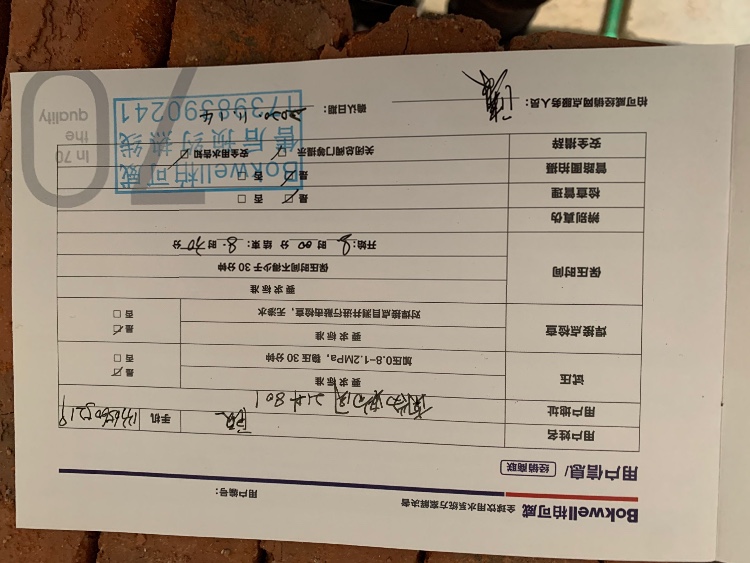 Bokwell柏可威 全球饮用水系统方案解决者
用户编号：
用户信息/ 经销商联
用户姓名 手机
用户地址 21# 801
试压 要求标准 是 否
加压0.8-1.2MPa，稳压 30 分钟
焊接点检查 要求标准 是 否
对焊接点目测并进行敲击检查，无渗水
保压时间 要求标准
保压时间不得少于 30 分钟
开始：8 时 00 分 结束：8 时 30 分
辨别真伪
检查管理 是 否
管路图拍摄 是 否
安全措辞 关闭总阀门等提示 安全用水告知
柏可威经销网点服务人员： 确认日期：2020.11.14
Bokwell柏可威
售后预约热线
17398390241
In 70
the
quality
70